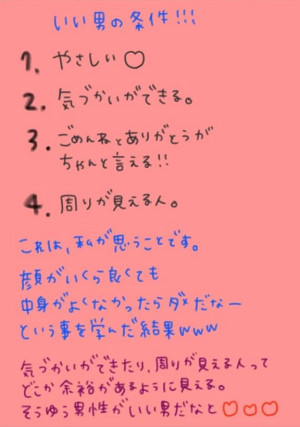 いい男の条件!!!
1. やさしい♡
2. 気づかいができる。
3. ごめんねとありがとうが
ちゃんと言える!!
4. 周りが見える人。
これは、私が思うことです。
顔がいくら良くても
中身がよくなかったらダメだなー
という事を学んだ結果www
気づかいができたり、周りが見える人って
どこか余裕があるように見える。
そうゆう男性がいい男だなと♡♡♡